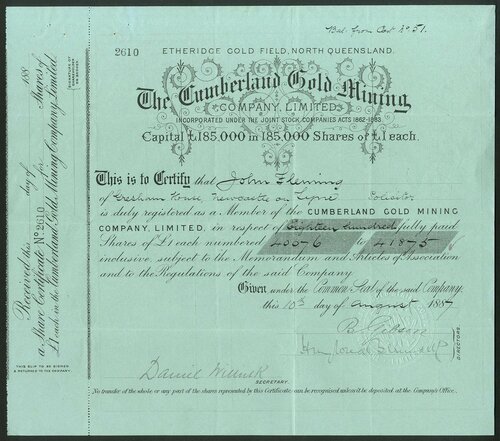 Bal. from Cert No 51.
2610
ETHERIDGE GOLD FIELD, NORTH QUEENSLAND.
The Cumberland Gold Mining
COMPANY, LIMITED.
INCORPORATED UNDER THE JOINT STOCK COMPANIES ACTS 1862-1883.
Capital £185,000 in 185,000 Shares of £1 each.
This is to Certify that John Fleming
of Gresham House, Newcastle on Tyne Solicitor
is duly registered as a Member of the CUMBERLAND GOLD MINING
COMPANY, LIMITED, in respect of Eighteen hundred fully paid
Shares of £1 each numbered 40076 to 41875
inclusive, subject to the Memorandum and Articles of Association
and to the Regulations of the said Company.
Given under the Common Seal of the said Company,
this 10th day of August 1887
DIRECTORS.
Daniel
SECRETARY.
No transfer of the whole or any part of the shares represented by this Certificate can be recognised unless it be deposited at the Company's Office.
Received this day of 188
a Share Certificate No 2610 for Shares of
£1 each in the Cumberland Gold Mining Company, Limited.
SIGNATURE OF
THIS SLIP TO BE SIGNED
& RETURNED TO THE COMPANY.